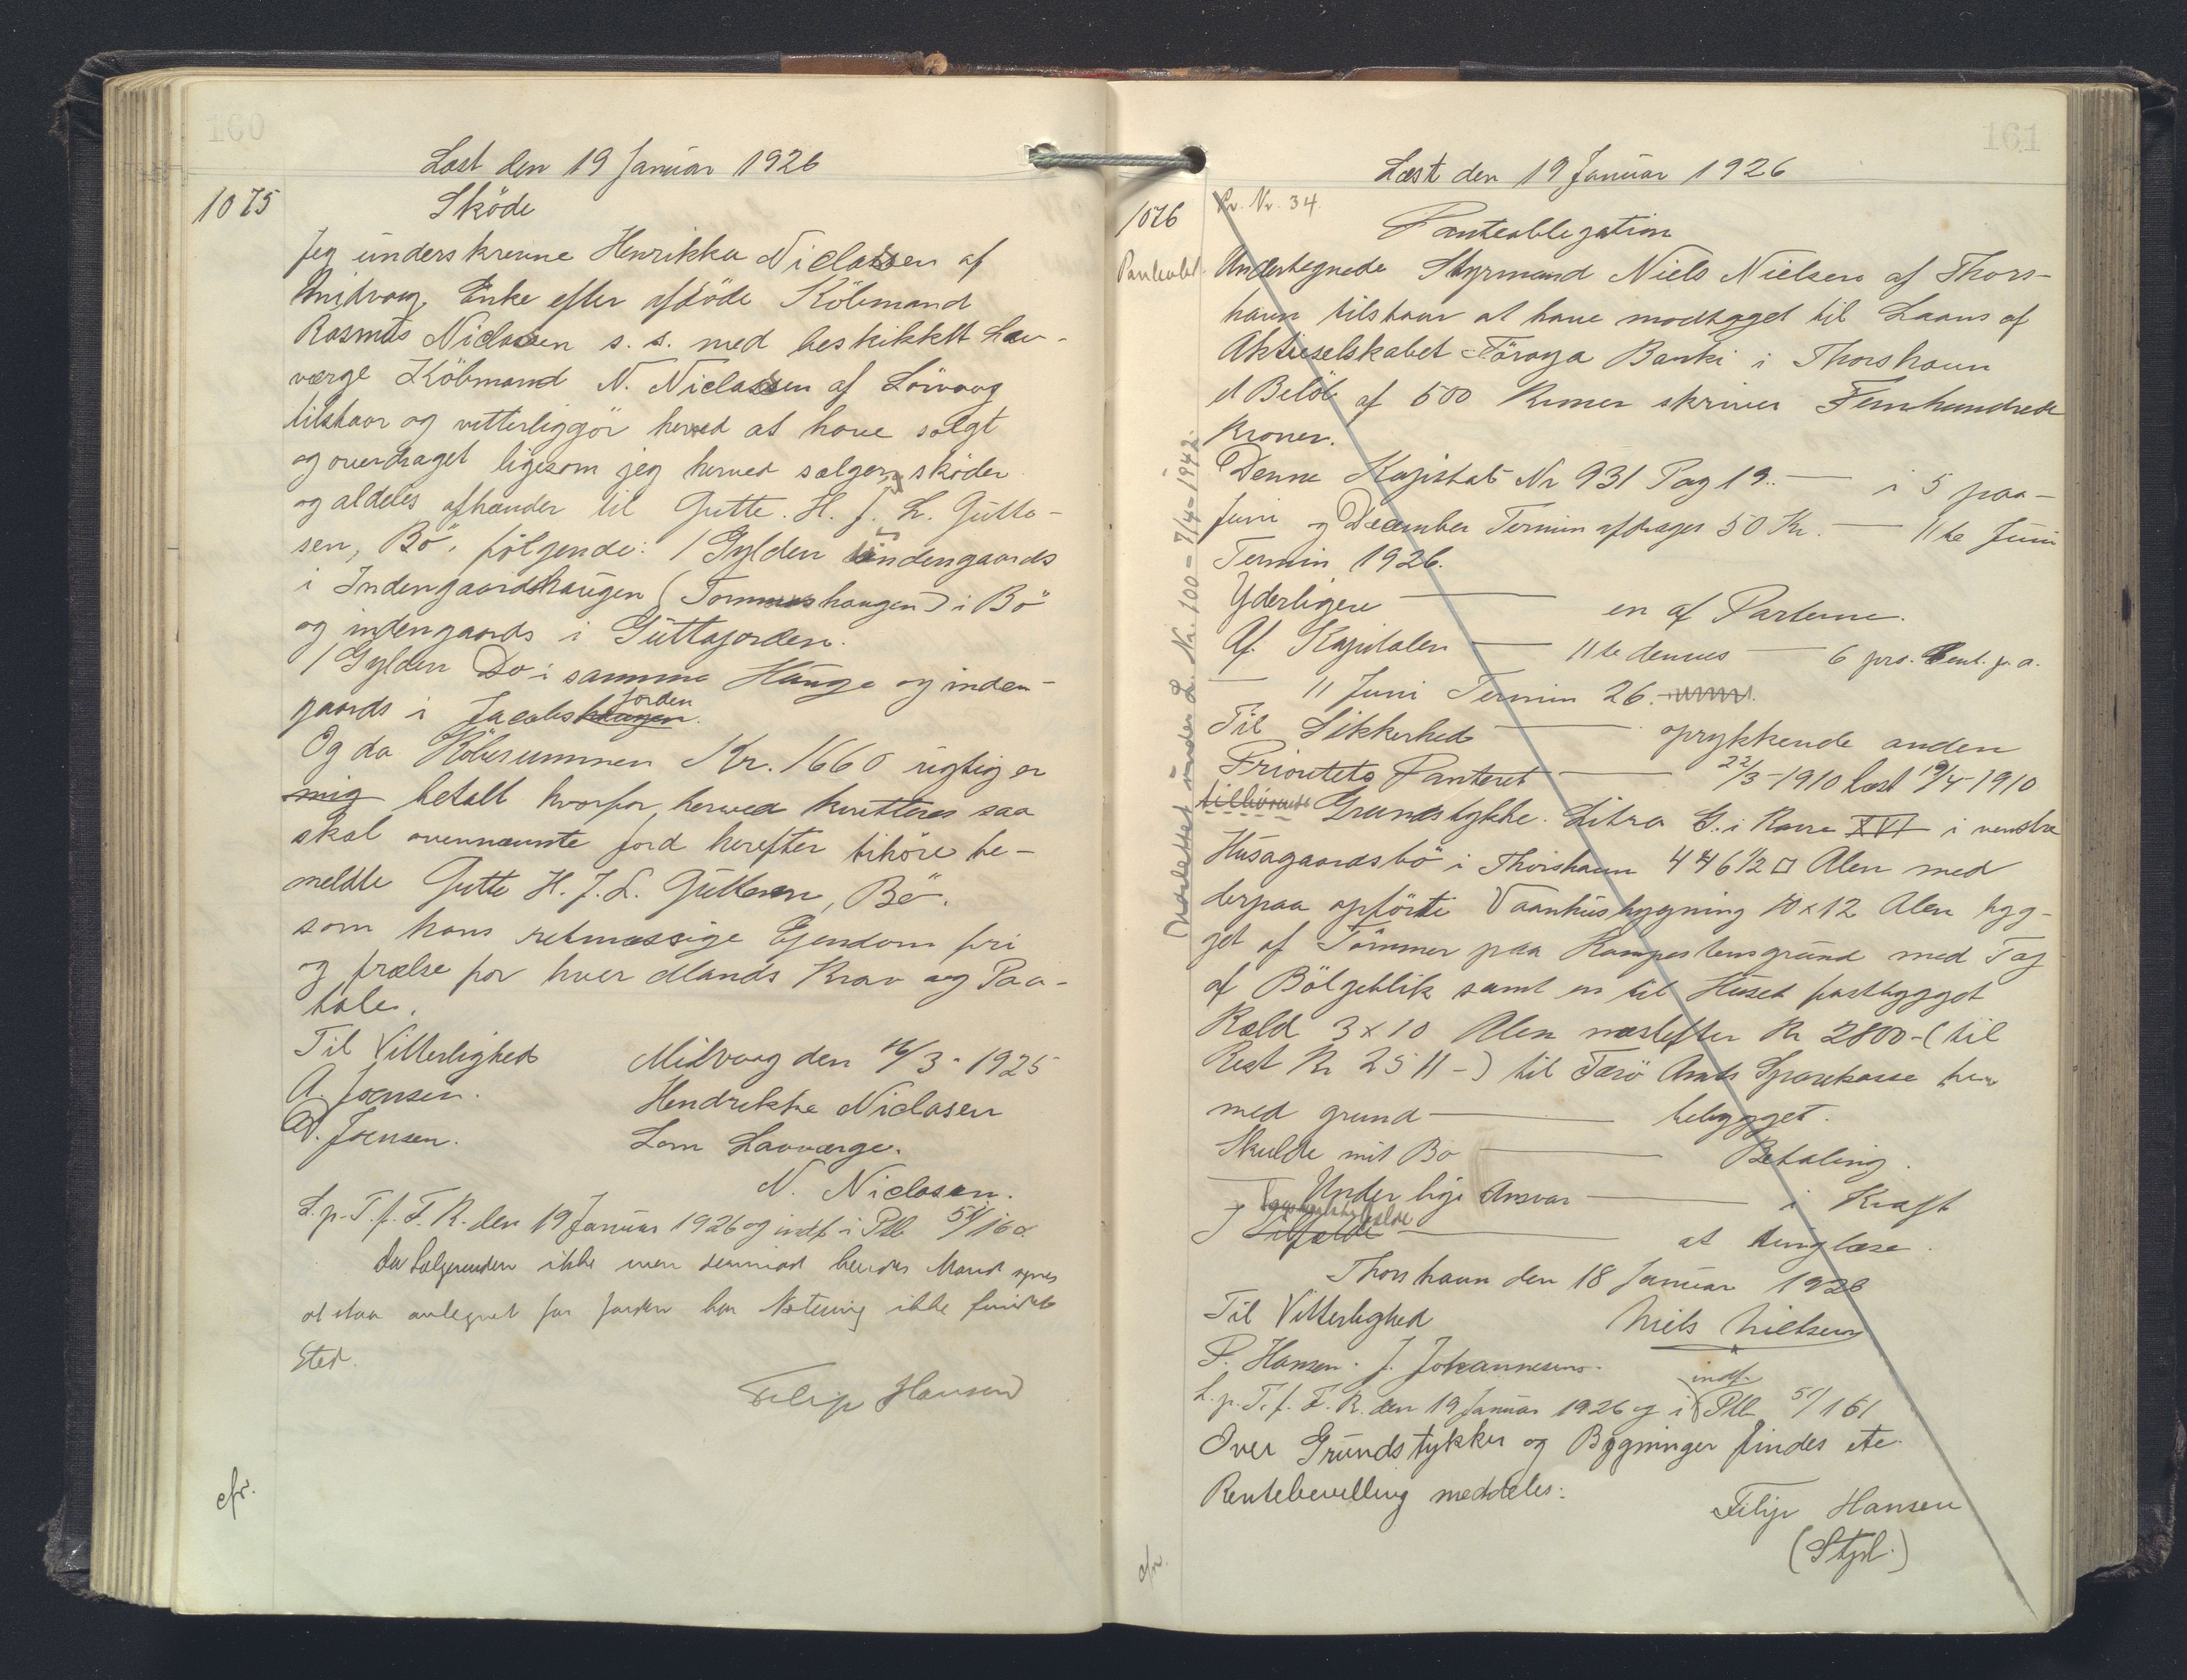 160
Læst den 19 Januar 1926
1075
Sköde
Jeg underskrevne Henrikka Niclassen af
Midvaag, Enke efter afdöde Köbmand
Rasmus Niclassen s. s. med beskikket Lav-
værge Köbmand N. Niclassen af Sörvaag
tilstaar og vitterliggör herved at have solgt
og overdraget ligesom jeg herved sælger, sköder
og aldeles afhænder til Gutte. H. J. L. Gutte-
sen, Bö, følgende: 1 Gylden indengaards
i Indengaardshaugen (Tommashaugen) i Bö
og indengaards i Guttajorden.
1 Gylden Do i samme Hauge og inden-
gaards i Jacobshaugen jorden
Og da Köbesummen Kr. 1660 rigtig er
mig betalt hvorfor herved kvitteres saa
skal ovennævnte Jord herefter tilhöre be-
meldte Gutte H. J. L. Guttesen, Bö.
som hans retmæssige Ejendom fri
og frelse for hver Mands Krav og Paa-
tale.
Til Vitterlighed
Midvaag den 16/3 - 1925
A. Joensen.
Hendrikke Niclasen
D. Joensen.
Som Lavværge.
N. Niclasen.
L. p. T. f. F. R. den 19 Januar 1926 og indf. i Ptb 51/160
Da Sælgerinden ikke men derimod hendes Mand synes
at staa antegnet for Jorden har Notering ikke fundet
Sted.
Filip Hansen
cfr.
161
Læst den 19 Januar 1926
1076
Pr. Nr. 34.
Panteobligation
Panteobl.
Undertegnede Styrmand Niels Nielsen af Thors-
havn tilstaar at have modtaget til Laans af
Aktieselskabet Föroya Banki i Thorshavn
et Belöb af 500 Kroner skriver Femhundrede
Kroner.
Denne Kapital Nr 931 Pag 19. — i 5 paa-
Juni og December Termin afdrages 50 Kr. — 11te Juni
Termin 1926.
Yderligere — en af Parterne.
Af Kapitalen — 11te dennes — 6 pro. Cent. p. a.
— 11 Juni Termin 26.
Til Sikkerhed — oprykkende anden
Prioritets Panteret — 22/3-1910 læst 19/4-1910
tilhørende Grundstykke. Litra G. i Karre XVI i venstre
Husagaardsbö i Thorshavn 446 1/2 □ Alen med
derpaa opförte Vaanhusbygning 10 x 12 Alen byg-
get af Tömmer paa Kampestensgrund med Tag
af Bölgeblik samt en til Huset fastbygget
Kæld 3 x 10 Alen næstefter Kr 2800-(til
Rest Kr 2511-) til Færö Amts Sparekasse hvor
med grund — bebygget.
Skulde mit Bo — Betaling.
— Under lige Ansvar — i Kraft
I Tilfælde — at tinglæse.
Thorshavn den 18 Januar 1926
Til Vitterlighed
Niels Nielsen
P. Hansen. J. Johannesen.
L. p. T. f. F. R. den 19 Januar 1926 og indf. i Ptb 51/161
Over Grundstykker og Bygninger findes etc.
Rentebevilling meddeles:
Filip Hansen
(Stpl.)
cfr.
Udslettet under L. Nr. 100 - 7/4-1942.